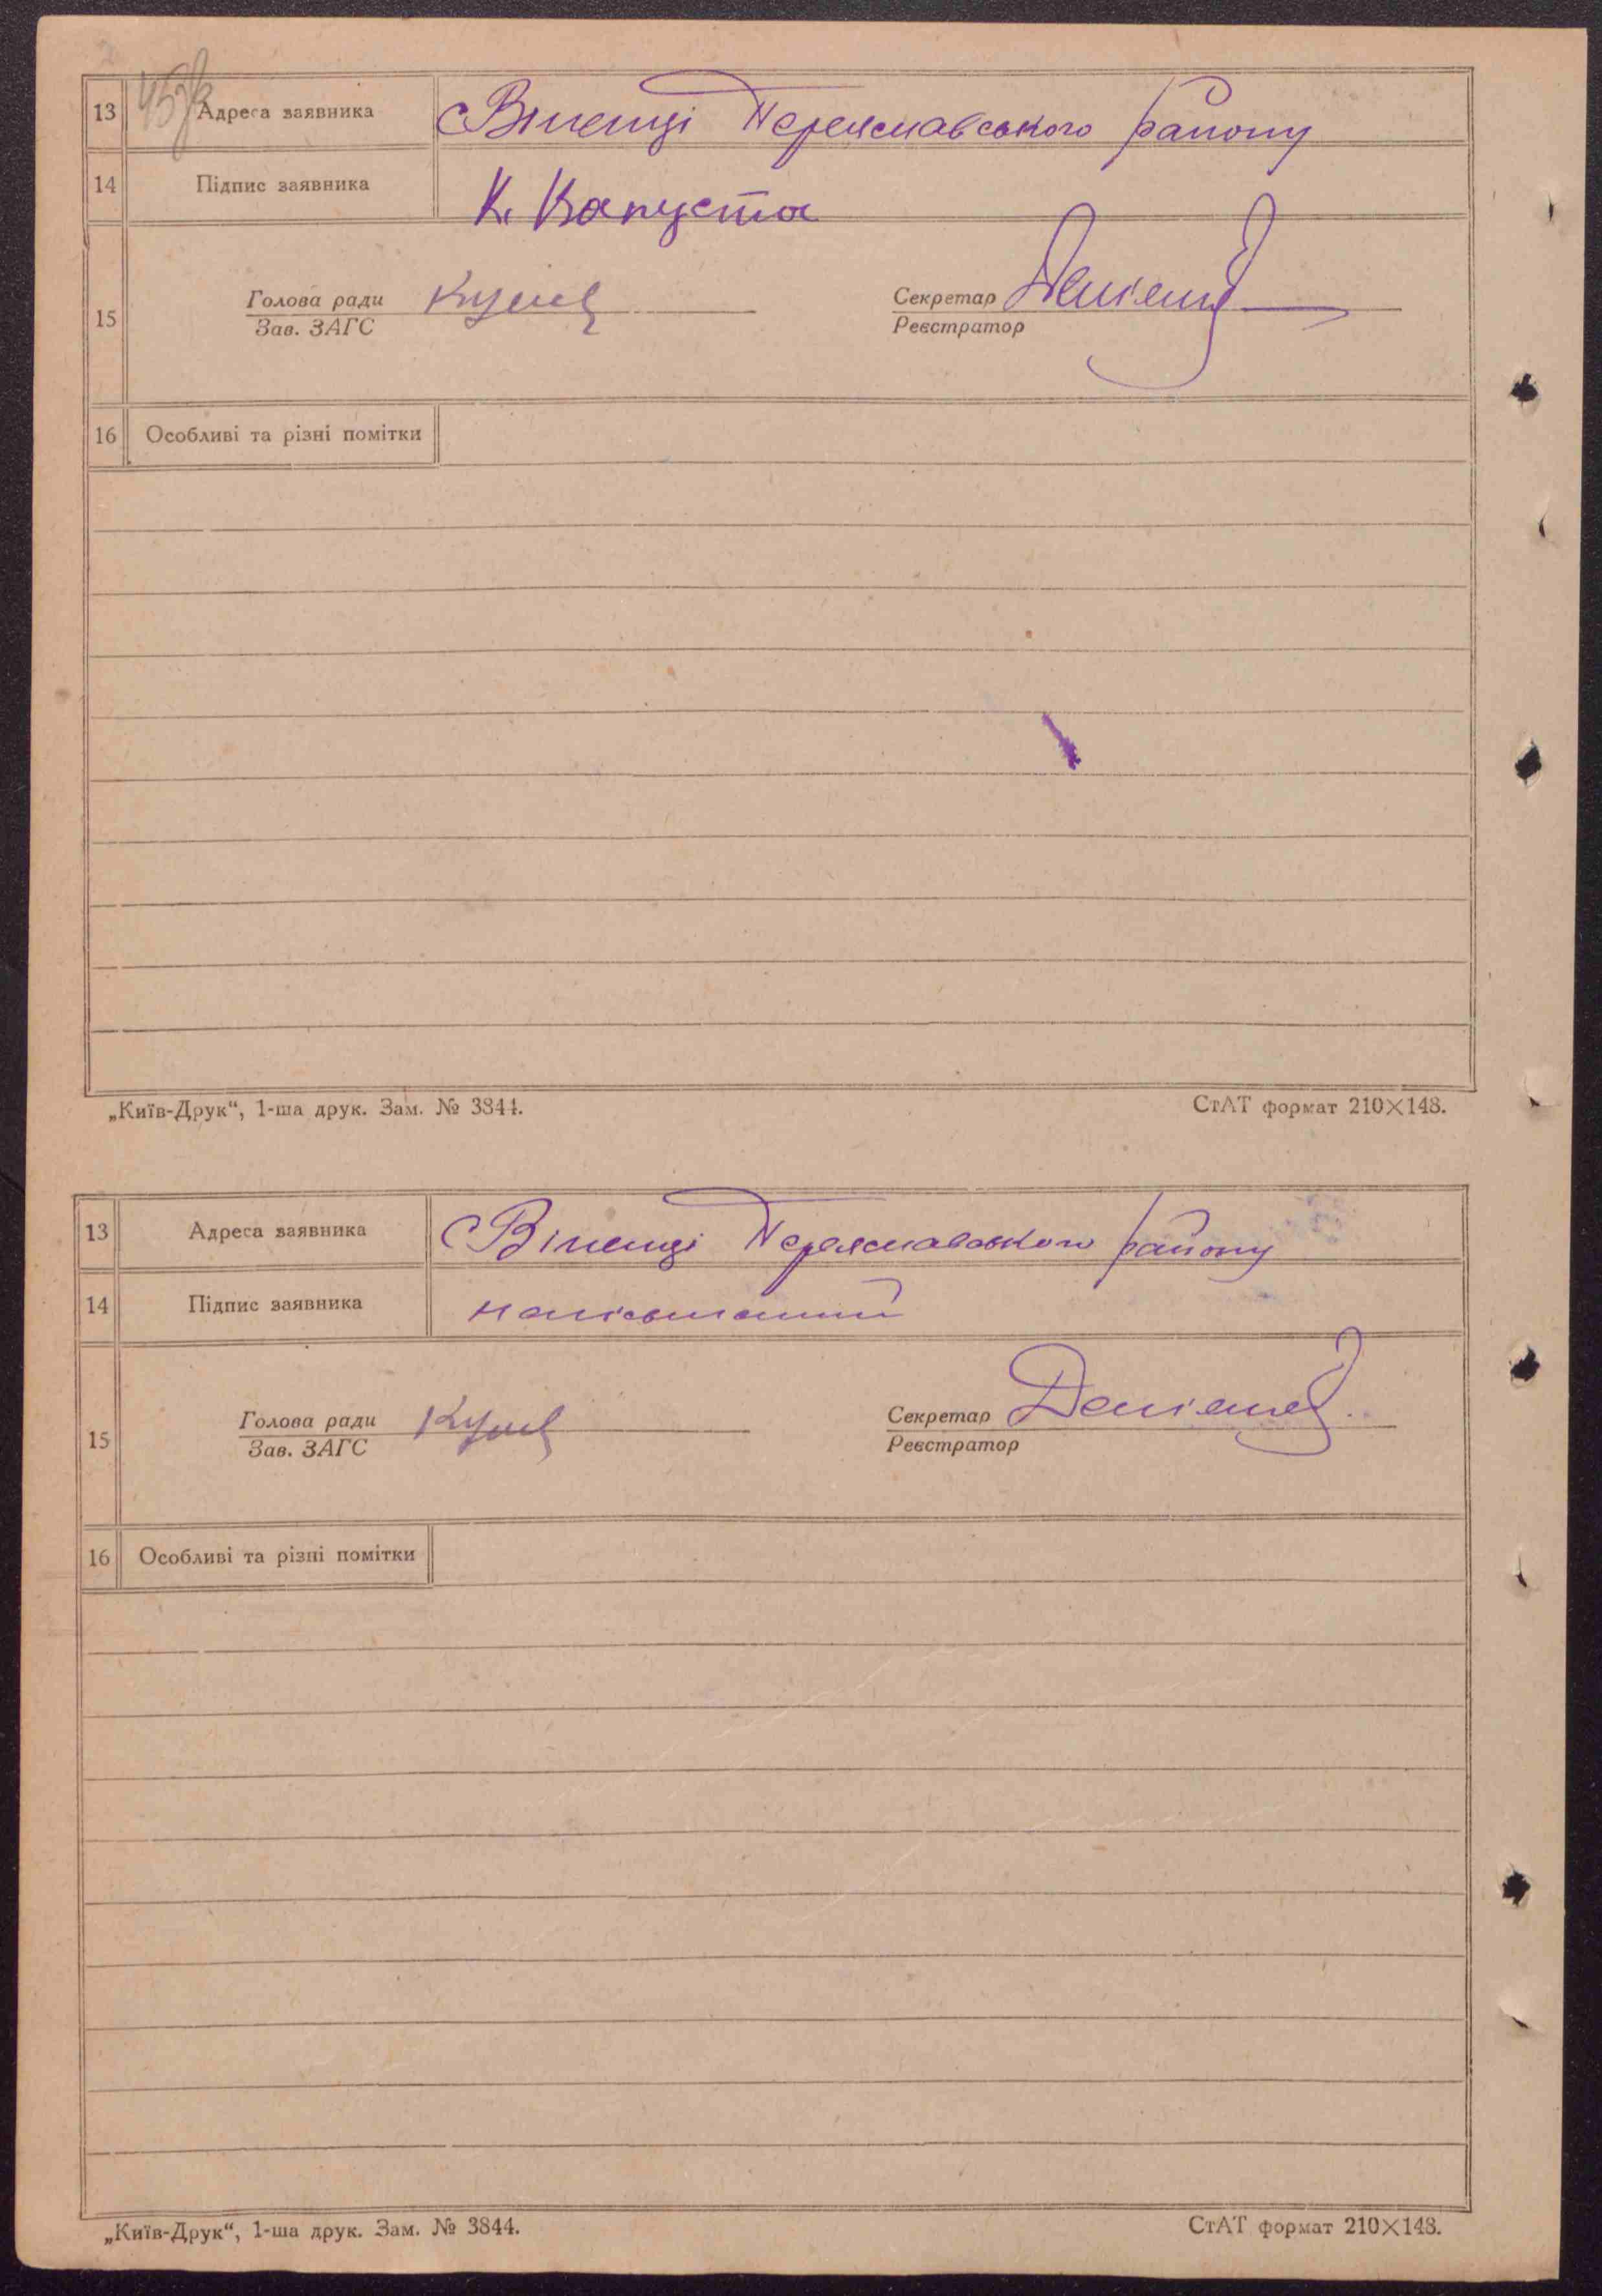 13 Адреса заявника с Віненці Переяславського району
14 Підпис заявника К. Капуста
15 Голова ради Секретар
Зав. ЗАГС Реєстратор
16 Особливі та різні помітки
„Київ-Друк“, 1-ша друк. Зам. № 3844. СтАТ формат 210×148.
13 Адреса заявника с Віненці Переяславського району
14 Підпис заявника
15 Голова ради Секретар
Зав. ЗАГС Реєстратор
16 Особливі та різні помітки
„Київ-Друк“, 1-ша друк. Зам. № 3844. СтАТ формат 210×148.